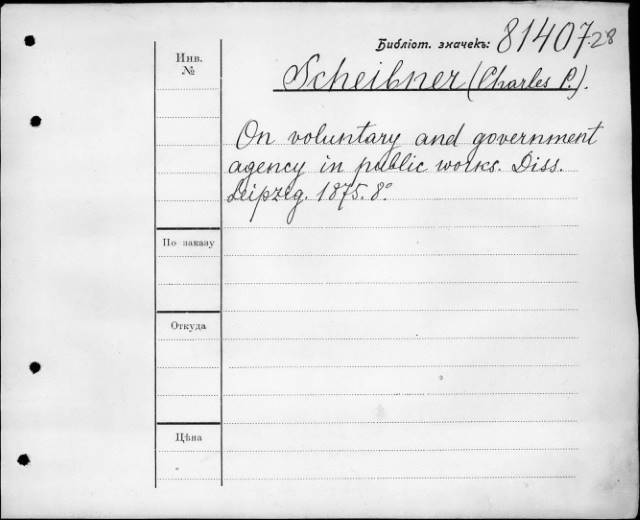 Библіот. значекъ: 81407-28
Инв. №
Scheibner (Charles P.).
On voluntary and government
agency in public works. Diss.
Leipzig. 1875. 8°
По заказу
Откуда
Цѣна